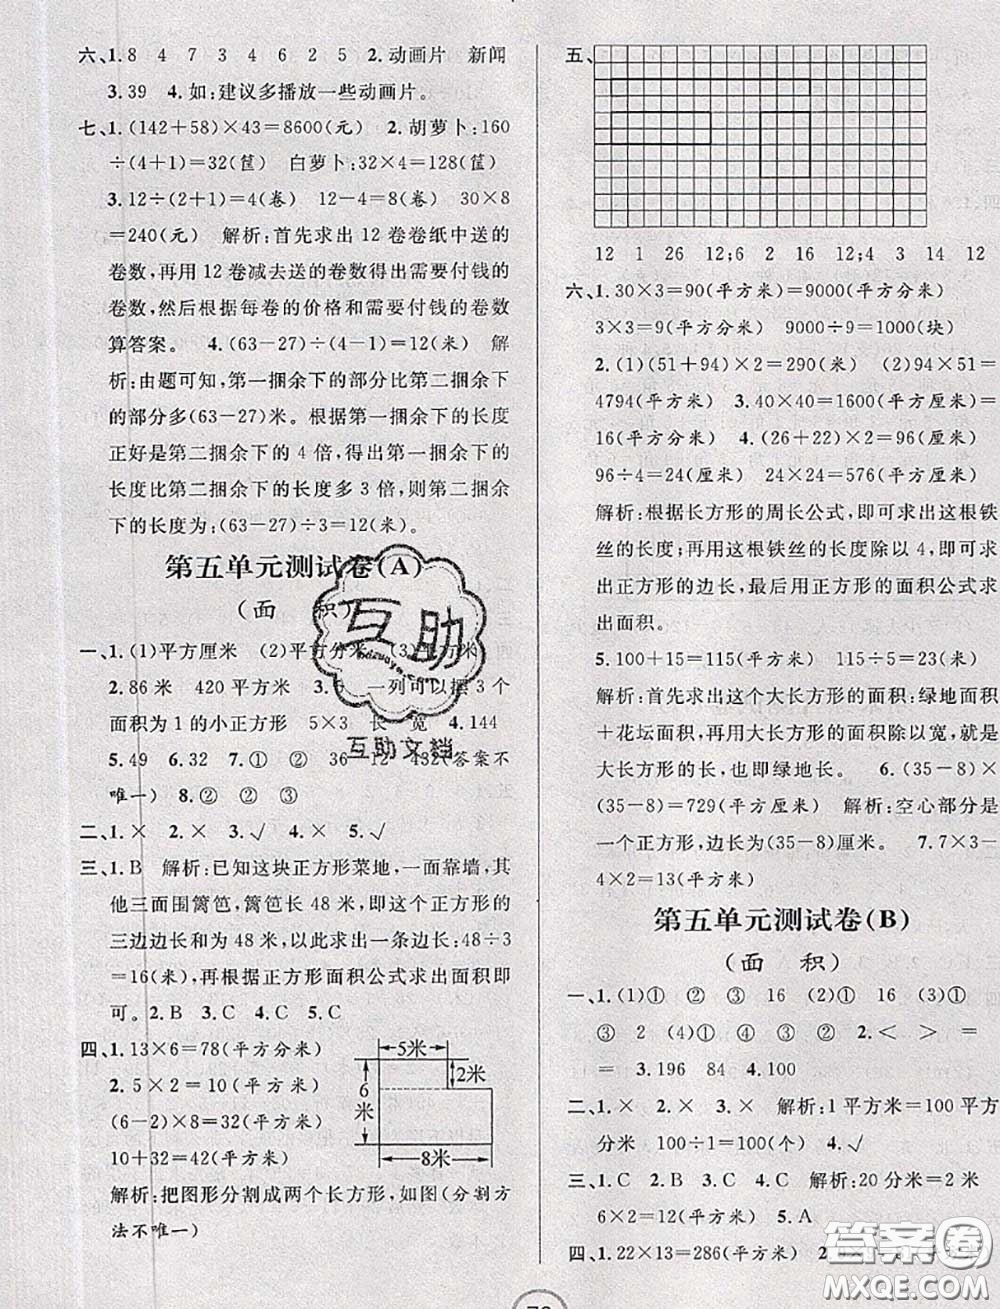 六、1.8　4　7　3　4　6　2　5　2.动画片　新闻
3.39　4.如:建议多播放一些动画片。
七、1.(142+58)×43=8600(元)　2.胡萝卜:160
÷(4+1)=32(筐)　白萝卜:32×4=128(筐)
3.12÷(2+1)=4(卷)　12-4=8(卷)　30×8
=240(元)　解析:首先求出12卷卷纸中送的
卷数,再用12卷减去送的卷数得出需要付钱的
卷数,然后根据每卷的价格和需要付钱的卷数
算答案。　4.(63-27)÷(4-1)=12(米)　解
析:由题可知,第一捆余下的部分比第二捆余下
的部分多(63-27)米。根据第一捆余下的长度
正好是第二捆余下的4倍,得出第一捆余下的
长度比第二捆余下的长度多3倍,则第二捆余
下的长度为:(63-27)÷3=12(米)。
第五单元测试卷(A)
(面　积)
一、1.(1)平方厘米　(2)平方分米　(3)平方米
2.86米　420平方米　3.5　一列可以摆3个
面积为1的小正方形　5×3　长　宽　4.144
5.49　6.32　7.①　②　36　12　432(答案不
唯一)　8.②　②　③
二、1.×　2.×　3.√　4.×　5.√
三、1.B　解析:已知这块正方形菜地,一面靠墙,其
他三面围篱笆,篱笆长48米,即这个正方形的
三边边长和为48米,以此求出一条边长:48÷3
=16(米),再根据正方形面积公式求出面积即
可。2.B　3.C　4.C　5.C
四、1.13×6=78(平方分米)
2.5×2=10(平方米)
(6-2)×8=32(平方米)
10+32=42(平方米)
5米
2米
6米
8米
解析:把图形分割成两个长方形,如图(分割方
法不唯一)
五、
12　1　26　12;6　2　16　12;4　3　14　12
六、1.30×3=90(平方米)=9000(平方分米)
3×3=9(平方分米)　9000÷9=1000(块)
2.(1)(51+94)×2=290(米)　(2)94×51=
4794(平方米)　3.40×40=1600(平方厘米)=
16(平方分米)　4.(26+22)×2=96(厘米)
96÷4=24(厘米)　24×24=576(平方厘米)
解析:根据长方形的周长公式,即可求出这根铁
丝的长度;再用这根铁丝的长度除以4,即可求
出正方形的边长,最后用正方形的面积公式求
出面积。
5.100+15=115(平方米)　115÷5=23(米)
解析:首先求出这个大长方形的面积:绿地面积
+花坛面积,再用大长方形的面积除以宽,就是
大长方形的长,也是绿地长。　6.(35-8)×
(35-8)=729(平方厘米)　解析:空心部分是
一个正方形,边长为(35-8)厘米。　7.7×3-
4×2=13(平方米)
第五单元测试卷(B)
(面　积)
一、1.(1)①　②　③　16　(2)①　16　(3)①
③　2　(4)①　②　③　②　2.<　>　=
=　3.196　84　4.100
二、1.×　2.×　3.×　解析:1平方米=100平方
分米　100÷1=100(个)　4.√
三、1.C　2.B　3.C　4.A　解析:20分米=2米
6×2=12(平方米)　5.A
四、1.22×13=286(平方米)
互助
互助文档
答案圈
MXQE.COM